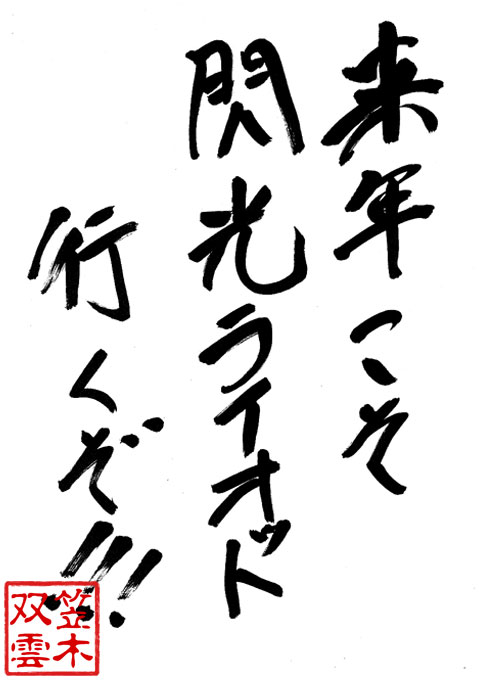 来年こそ
閃光ライオット
行くぞ!!!
笠木
双雲